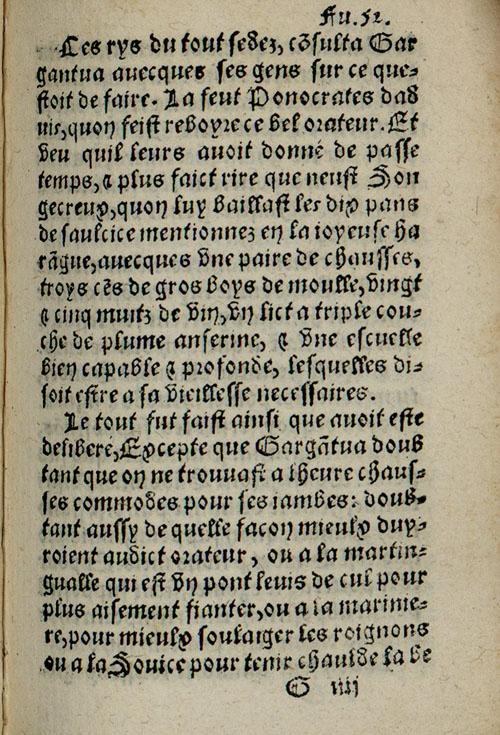 Fu.52.
Ces rys du tout sedez, cõsulta Gar
gantua auecques ses gens sur ce que-
stoit de faire. La feut Ponocrates dad
uis, quon feist reboyre ce bel orateur. Et
veu quil leurs auoit donné de passe
temps, & plus faict rire que neust Son
gecreux, quon luy baillast les dix pans
de saulcice mentionnez en la ioyeuse ha
rãgue, auecques vne paire de chausses,
troys cẽs de gros boys de moulle, vingt
& cinq muitz de vin, vn lict a triple cou-
che de plume anserine, & vne escuelle
bien capable & profonde, lesquelles di-
soit estre a sa vieillesse necessaires.
Le tout fut faist ainsi que auoit este
deliberé, Excepte que Gargãtua doub
tant que on ne trouuast a lheure chaus-
ses commodes pour ses iambes: doub-
tant aussy de quelle facon mieulx duy-
roient audict orateur, ou a la martin-
gualle qui est vn pont leuis de cul pour
plus aisement fianter, ou a la marinie-
re, pour mieulx soulaiger les roignons
ou a la Souice pour tenir chaulde la be
G iiii